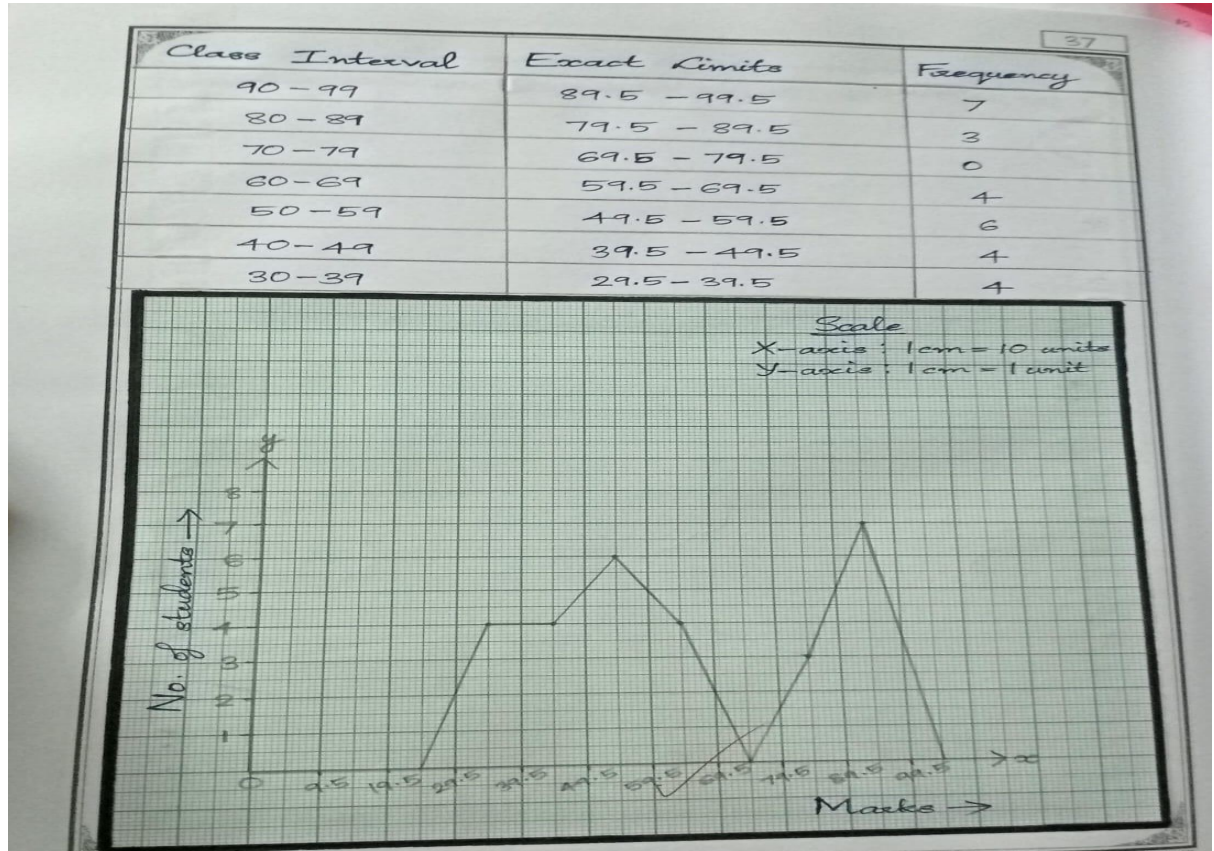 37
Class Interval Exact Limits Frequency
90-99 89.5 - 99.5 7
80-89 79.5 - 89.5 3
70-79 69.5 - 79.5 0
60-69 59.5 - 69.5 4
50-59 49.5 - 59.5 6
40-49 39.5 - 49.5 4
30-39 29.5 - 39.5 4
Scale
X-axis : 1cm = 10 units
Y-axis : 1cm = 1 unit
y
8
7
6
5
4
3
2
1
No. of students →
0 9.5 19.5 29.5 39.5 49.5 59.5 69.5 79.5 89.5 99.5 x
Marks →